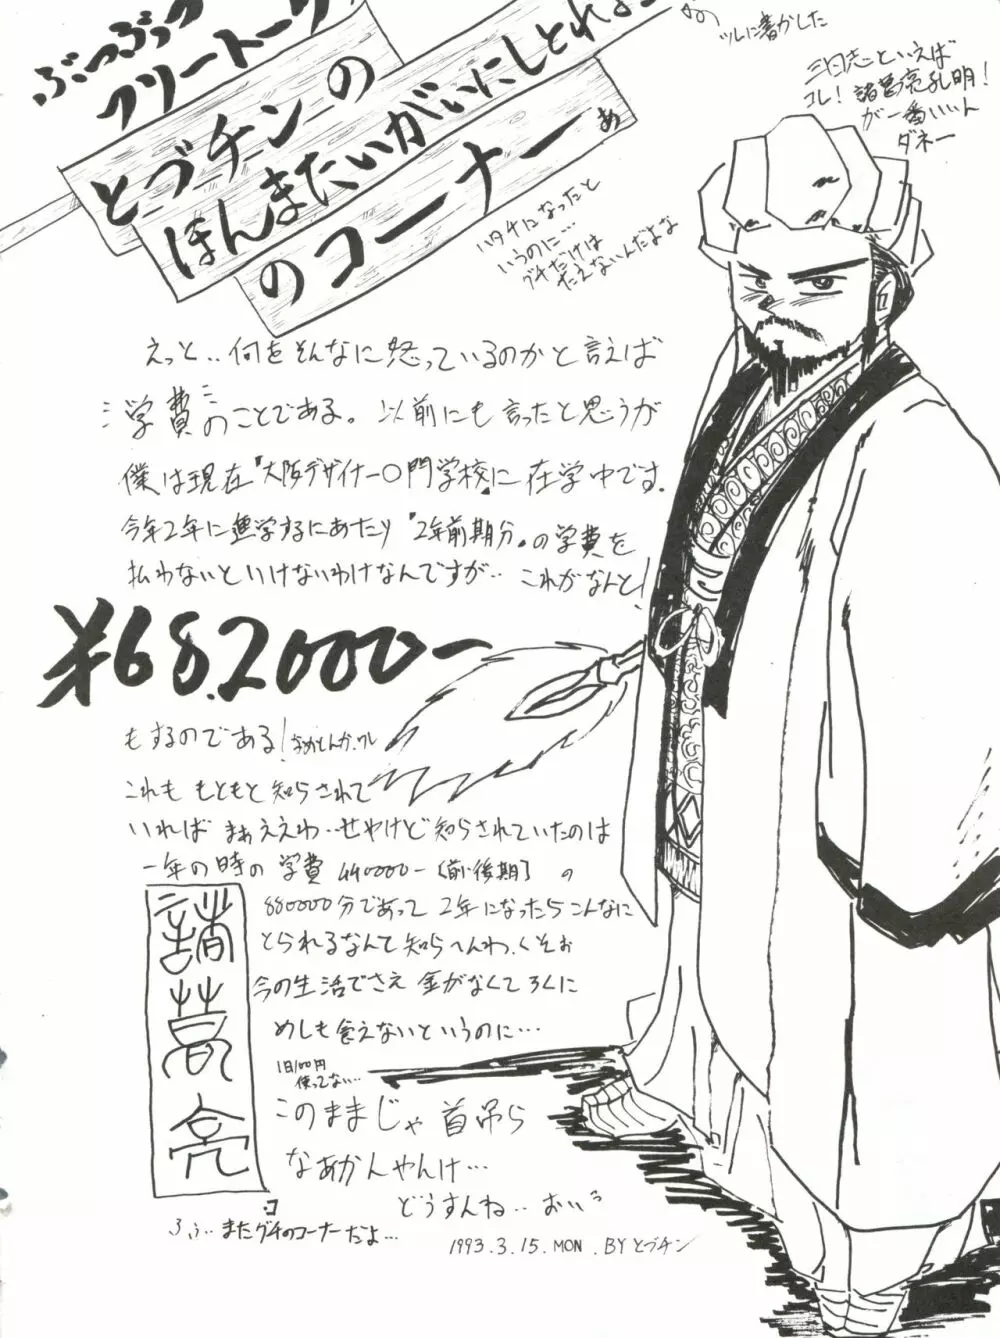 ぶつぶつ
フリートーク
とブチンの
ほんまたいがいにしとれよ
のコーナーぁ
ツレに書かした
三国志といえば
コレ！諸葛亮孔明！
が一番いいん
ダネー
ハタチになったと
いうのに…
グチだけは
たえないんだよな
えっと‥何をそんなに怒っているのかと言えば
学費のことである。以前にも言ったと思うが
僕は現在『大阪デザイナー○門学校』に在学中です。
今年2年に進学するにあたり『2年前期分』の学費を
払わないといけないわけなんですが‥これがなんと！
¥682000-
もするのである！
これももともと知らされて
いればまぁええわ‥せやけど知らされていたのは
一年の時の学費440000-〔前・後期〕の
880000分であって2年になったらこんなに
とられるなんて知らへんわ、くそぉ
今の生活でさえ金がなくてろくに
めしも食えないというのに…
1日100円
使ってない…
このままじゃ首吊ら
なあかんやんけ…
どうすんね‥おいっ
諸葛亮
ふぅ‥またグチのコーナーだよ…
1993.3.15.MON.BYとブチン